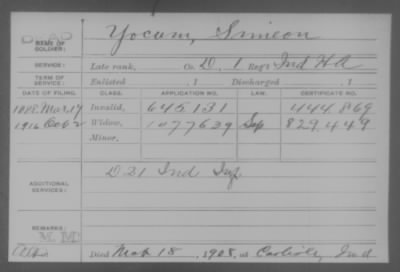 DEAD
NAME OF SOLDIER: Yocum, Simeon
SERVICE: Late rank, Co. D, 1 Reg't Ind HA
TERM OF SERVICE: Enlisted , 1 Discharged , 1
DATE OF FILING. CLASS. APPLICATION NO. LAW. CERTIFICATE NO.
1888 Mar 17 Invalid, 645131 444.869
1916 Oct 2 Widow, 1077639 Sep 829.449
Minor,
ADDITIONAL SERVICES: D 21 Ind Inf
REMARKS:
M M
Died Mar 18, 1908, at Carlisle, Ind